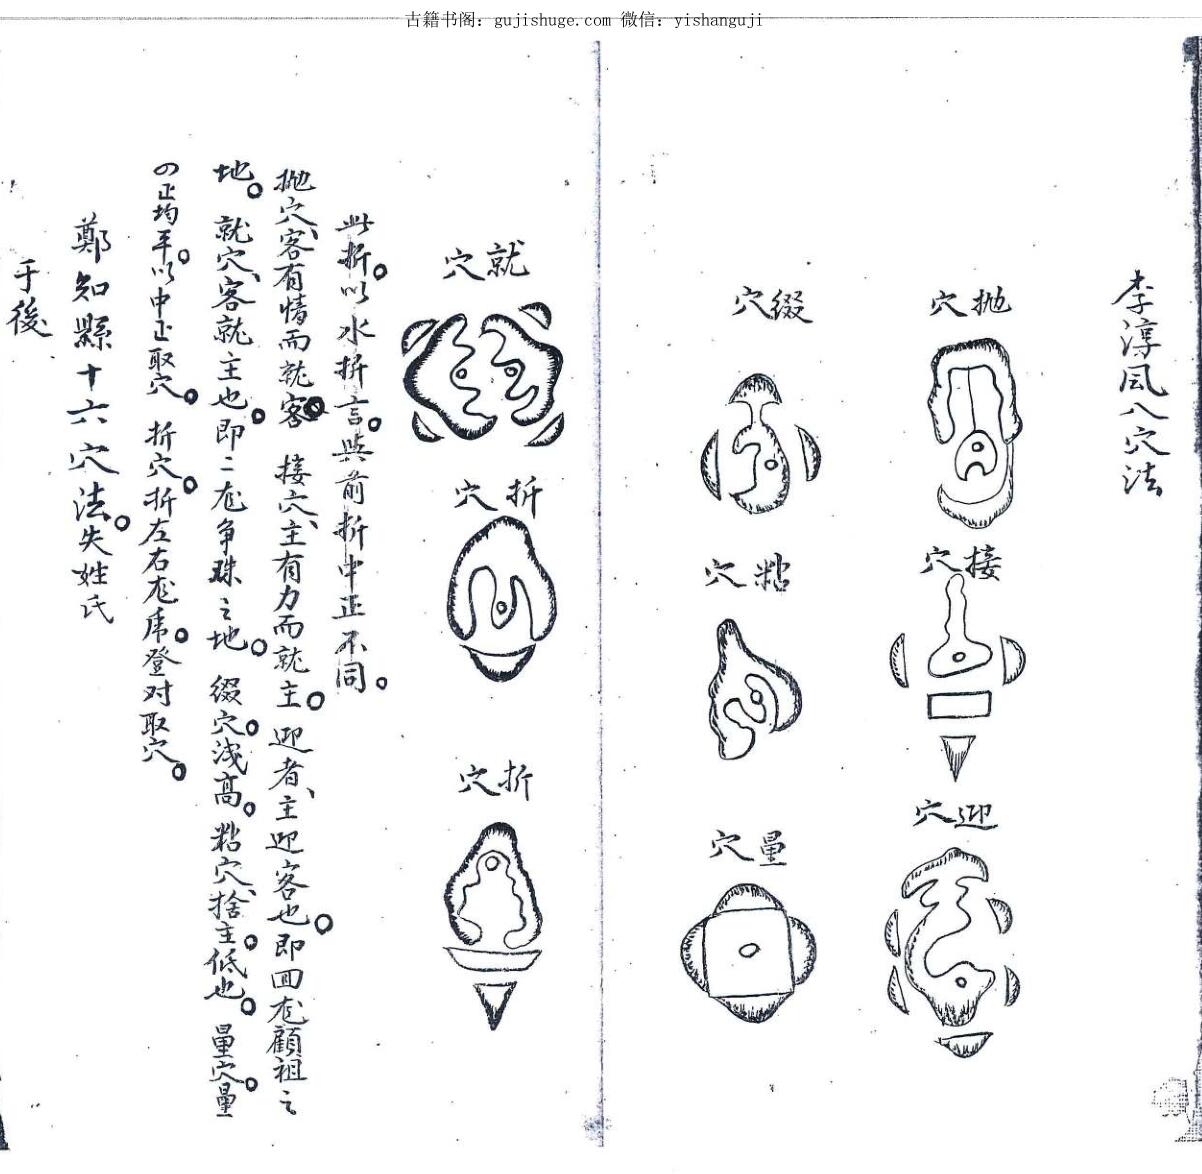 古籍书阁：gujishuge.com 微信：yishanguji
李淳风八穴法
抛穴
接穴
迎穴
缀穴
粘穴
量穴
就穴
折穴
折穴
此折。以水拼言。與前折中正不同。
抛穴、客有情而就客 接穴、主有力而就主。迎者、主迎客也。即囬龙顧祖之
地。就穴、客就主也。即二龙争珠之地。缀穴。浅高。粘穴、捨主。低也。量穴。量
四正均平。以中正取穴。折穴。折左右龙虎。登对取穴。
鄭知縣十六穴法。失姓氏
于後